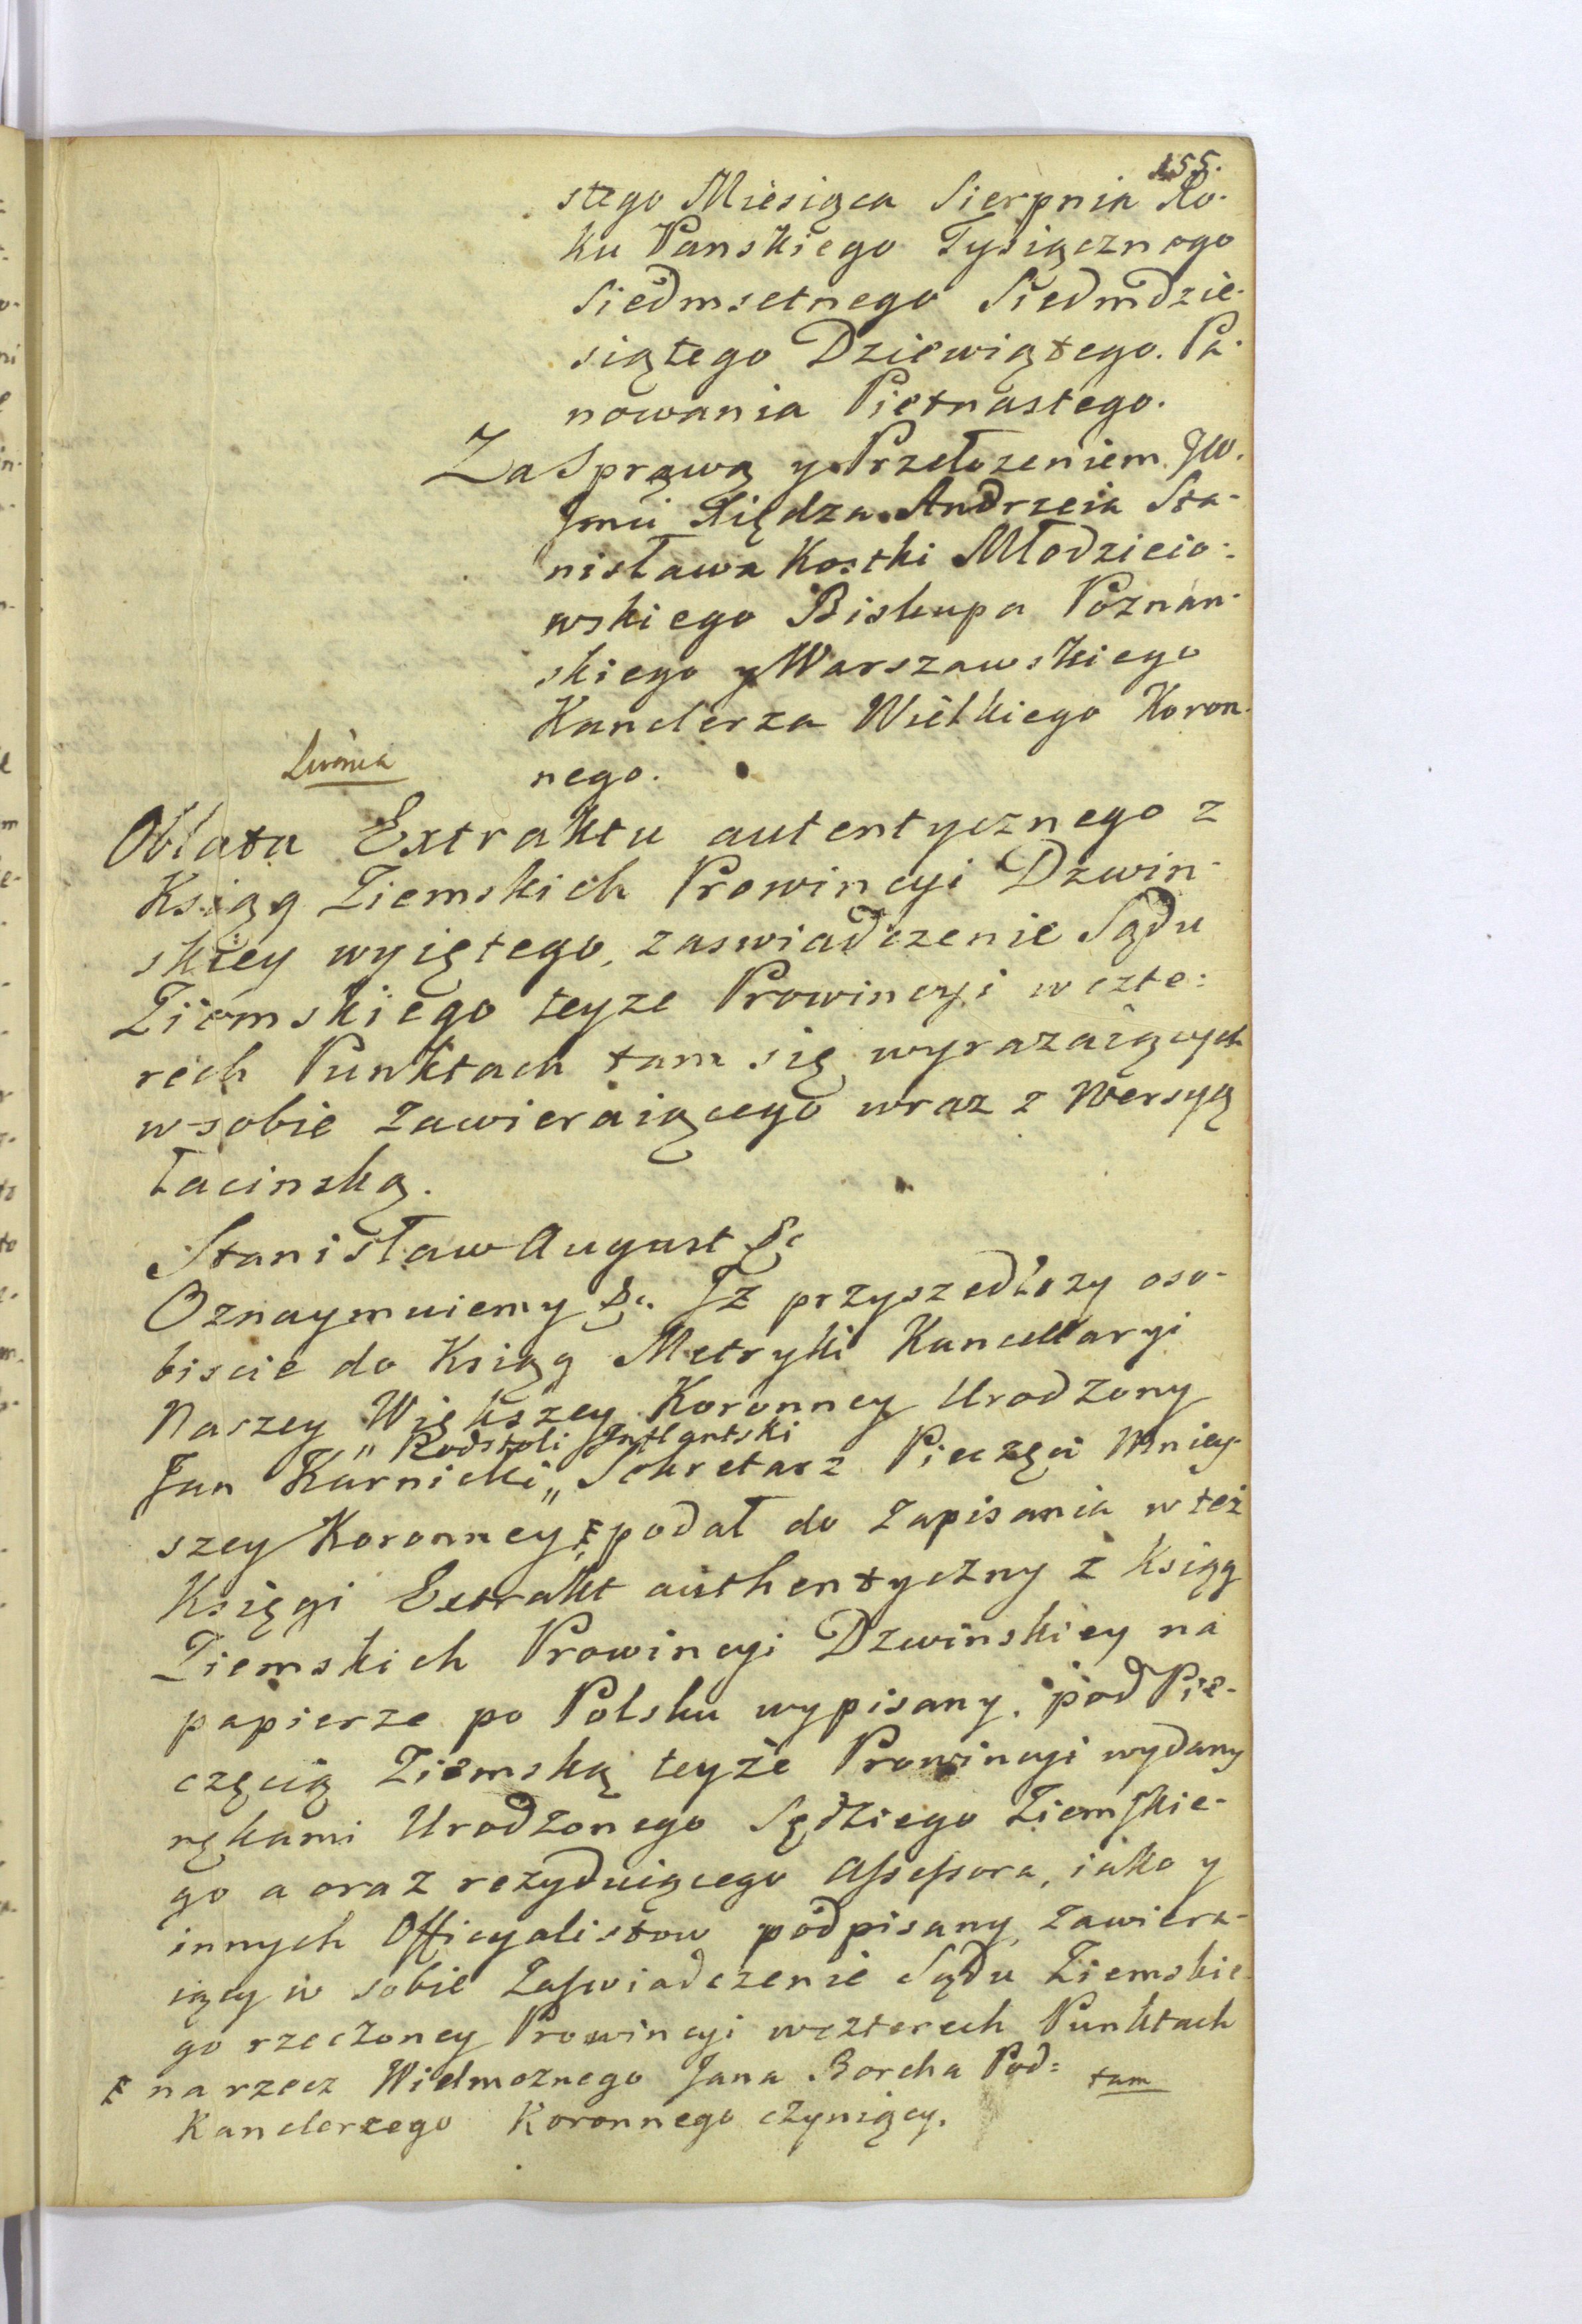 155.
stego Miesiąca Sierpnia Ro-
ku Panskiego Tysiącznego
Siedmsetnego Siedmdzie-
siątego Dziewiątego. Pa-
nowania Pietnastego.
Za Sprawą y Przełozeniem JW.
Jmci Xiędza Andrzeia Sta-
nisława Kostki Młodzieio-
wskiego Biskupa Poznan-
skiego y Warszawskiego
Kanclerza Wielkiego Koron-
nego.
Oblata Extraktu autentycznego z
Ksiąg Ziemskich Prowincyi Dzwin-
skiey wyiętego, zaswiadczenie Sądu
Ziemskiego teyze Prowincyi w czte:
rech Punktach tam się wyrazaiących
w sobie zawieraiącego wraz z Wersyą
łacinską.
Stanisław August &c
Oznaymuiemy &c. Iż przyszedłszy oso-
biscie do Ksiąg Metryki Kancellaryi
Naszey Większey Koronney Urodzony
" Podstoli Inflantski
Jan Karnicki " Sekretarz Pieczęci Mniey-
szey Koronney ꝉ podał do zapisania w też
Księgi Extrakt authentyczny z Ksiąg
Ziemskich Prowincyi Dzwinskiey na
papierze po Polsku wypisany, pod Pie-
częcią Ziemską teyże Prowincyi wydany
rękami Urodzonego Sędziego Ziemskie-
go a oraz rezyduiącego Assessora, iako y
innych Officyalistow podpisany, zawiera-
iący w sobie Zaswiadczenie Sądu Ziemskie-
go rzeczoney Prowincyi w czterech Punktach
ꝉ na rzecz Wielmoznego Jana Borcha Pod= tam
Kanclerzego Koronnego czyniący.